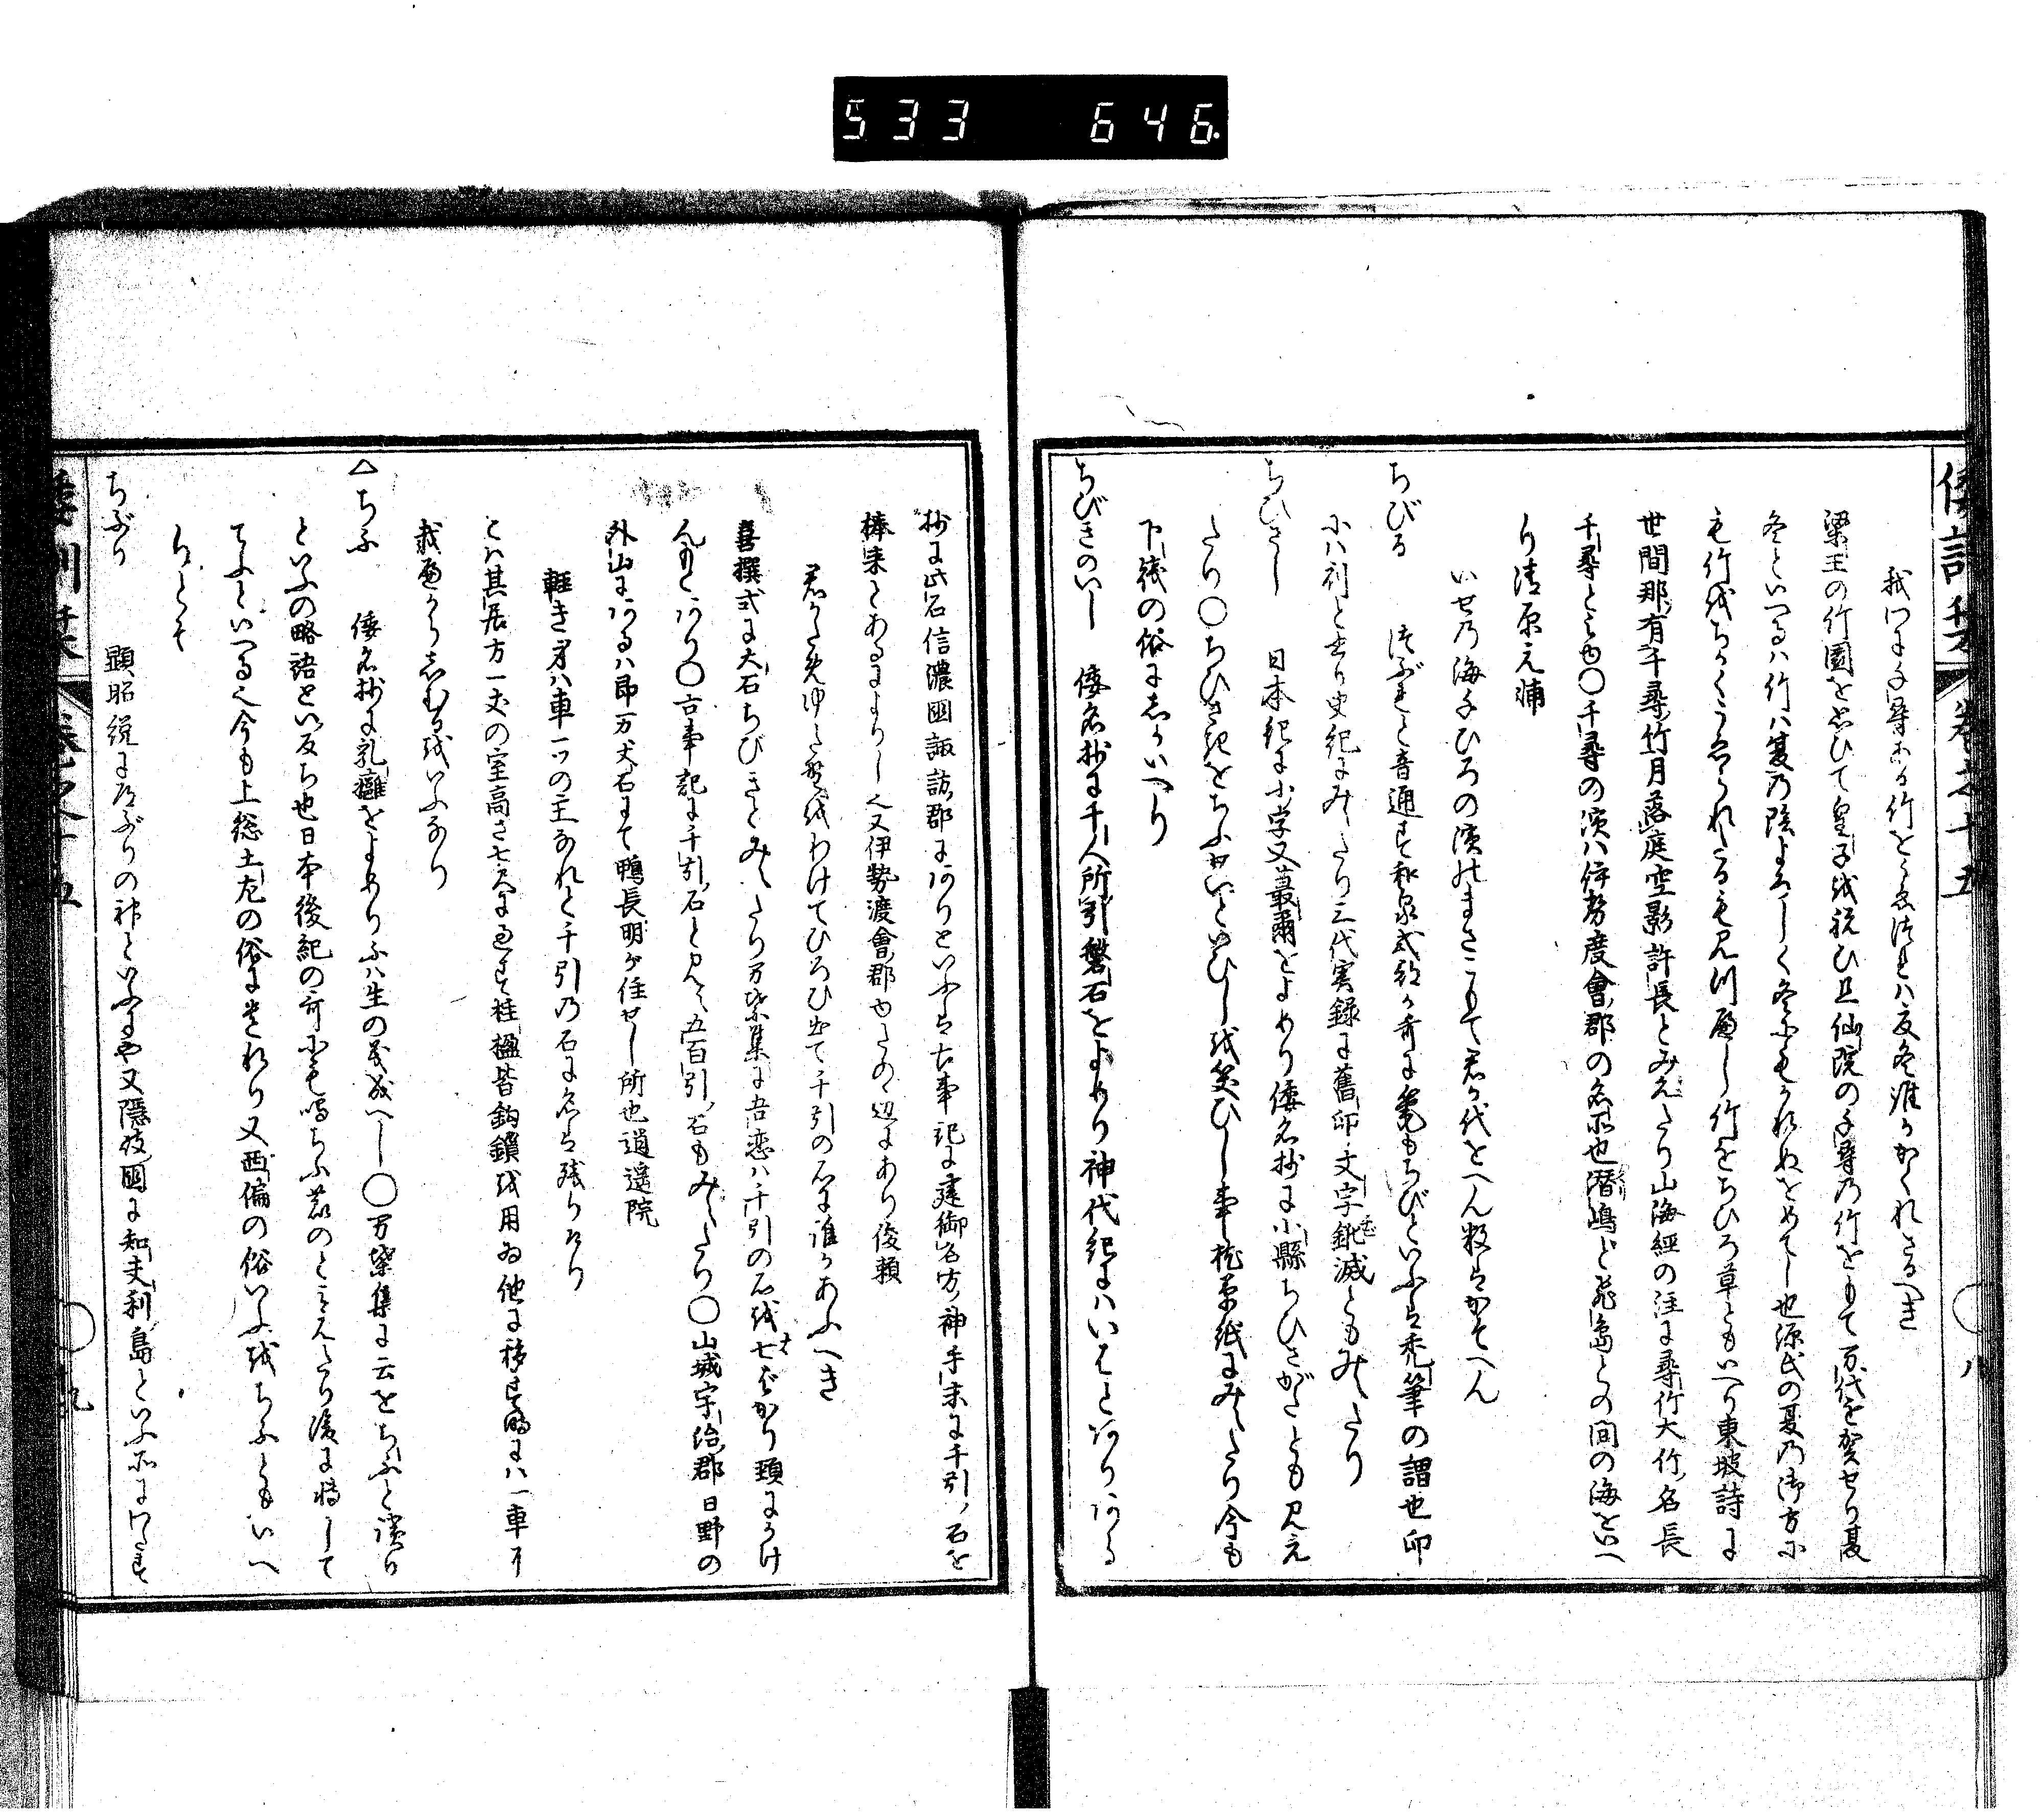 533 646
倭訓栞 巻之十五 八
我門に千尋ある竹をうゑつれハ夏冬誰かかくれさるへき
梁王の竹園を思ひて皇子を祝ひ且仙院の千尋の竹をもて万代を賀せり夏
冬といへるハ竹ハ夏の陰よろしく冬にもかれぬをめてし也源氏の夏の御方に
も竹をちかくうゑられたるも見つへし竹をちひろ草ともいへり東坡詩に
世間那有千尋竹月落庭空影許長とみえたり山海經の注に尋竹大竹名長
千尋とも也〇千尋の濱ハ伊勢度會郡の名所也潜嶋と飛島との間の海をいへ
り清原元輔
いせの海千ひろの濱のまさこもて君か代をへん数はかそへん
ちびる つぶると音通す和泉式部か哥に筆もちびといふは禿筆の謂也印
にハ刓と書り史紀にみえたり三代実録に舊印文字訛減ともみえたり
ちひさし 日本紀に小字又蕞爾をよめり倭名抄に小縣ちひさがたとも見え
たり〇ちひさきをちふさいといひしを笑ひし事枕草紙にみえたり今も
下﨟の俗にしかいへり
ちびきのいし 倭名抄に千人所引磐石をよめり神代紀にハいはとありある
抄に此石信濃國諏訪郡にありといふは古事記に建御名方神手末に千引石を
捧来とあるによりし也又伊勢渡會郡やたのゝ辺にあり俊頼
君かためゆたけをわけてひろひ出て千引の石に誰かあふへき
喜撰式に大石ちびきとみえたり万葉集に吾恋ハ千引の石を七はかり頚にかけ
んもとあり〇古事記に千引石と見え五百引石もみえたり〇山城宇治郡日野の
外山にあるハ即万丈石にて鴨長明が住せし所也逍遥院
軽き身ハ車一つの主なれと千引の石に名は残りけり
こハ其居方一丈の室高さ七尺にみたす柱楹皆鈎鎖を用ゐ他に移す時にハ一車に
載へからしむるをいふなり
△ちふ 倭名抄に乳癰をよめりふハ生の義成へし〇万葉集に云をちふと讀り
といふの略語といふち也日本後紀の哥にも鳴ちふ鹿のとみえたり後に轉して
てふといへる也今も上総土左の俗にされり又西偏の俗いふをちふともいへ
りとそ
ちぶり 顕昭説に道ぶりの神といふにや又隠岐國に知夫利島といふ所にわたす
倭訓栞 巻之十五 九